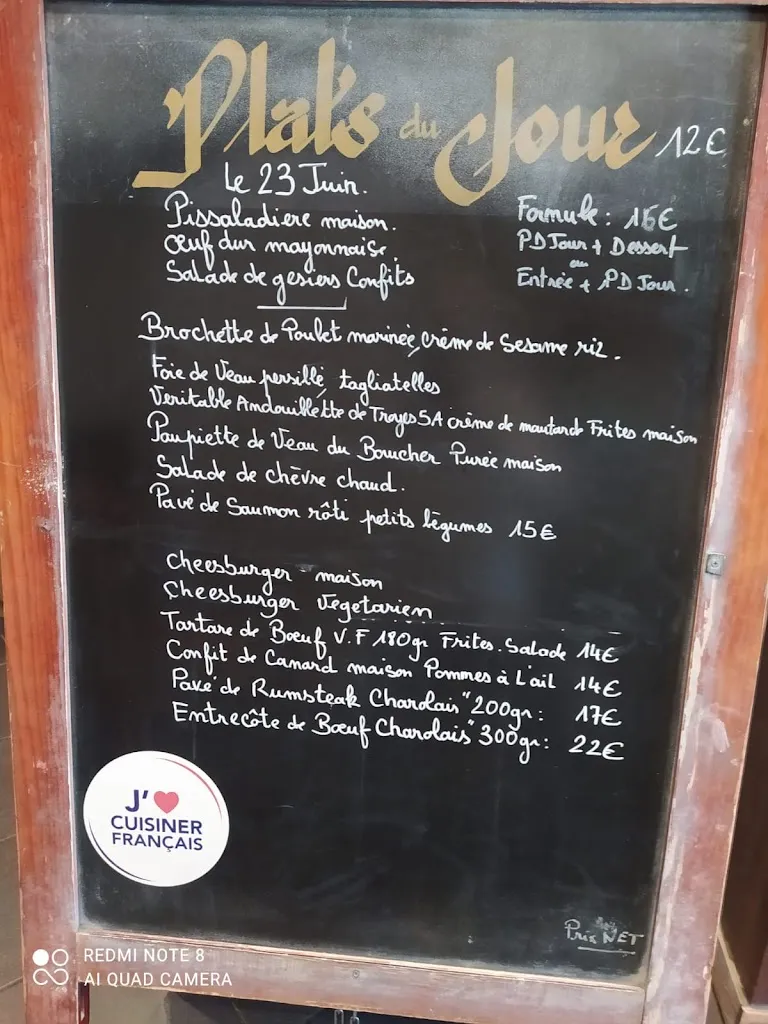 Plats du Jour 12€
Le 23 Juin.
Pissaladiere maison.
œuf dur mayonnaise.
Salade de gesiers Confits
Formule: 15€
PD Jour + Dessert
ou
Entrée + PD Jour.
Brochette de Poulet marinée, crème de Sesame riz.
Foie de Veau persillé, tagliatelles
Veritable Andouillette de Troyes 5A crème de moutarde Frites maison
Paupiette de Veau du Boucher Purée maison
Salade de chèvre chaud.
Pavé de Saumon rôti petits légumes 15€
Cheesburger maison
Cheesburger Vegetarien
Tartare de Bœuf V.F 180gr Frites. Salade 14€
Confit de Canard maison Pommes à L'ail 14€
Pavé de Rumsteak Charolais" 200gr: 17€
Entrecôte de Bœuf Charolais" 300gr: 22€
J'
CUISINER
FRANÇAIS
Prix NET
REDMI NOTE 8
AI QUAD CAMERA